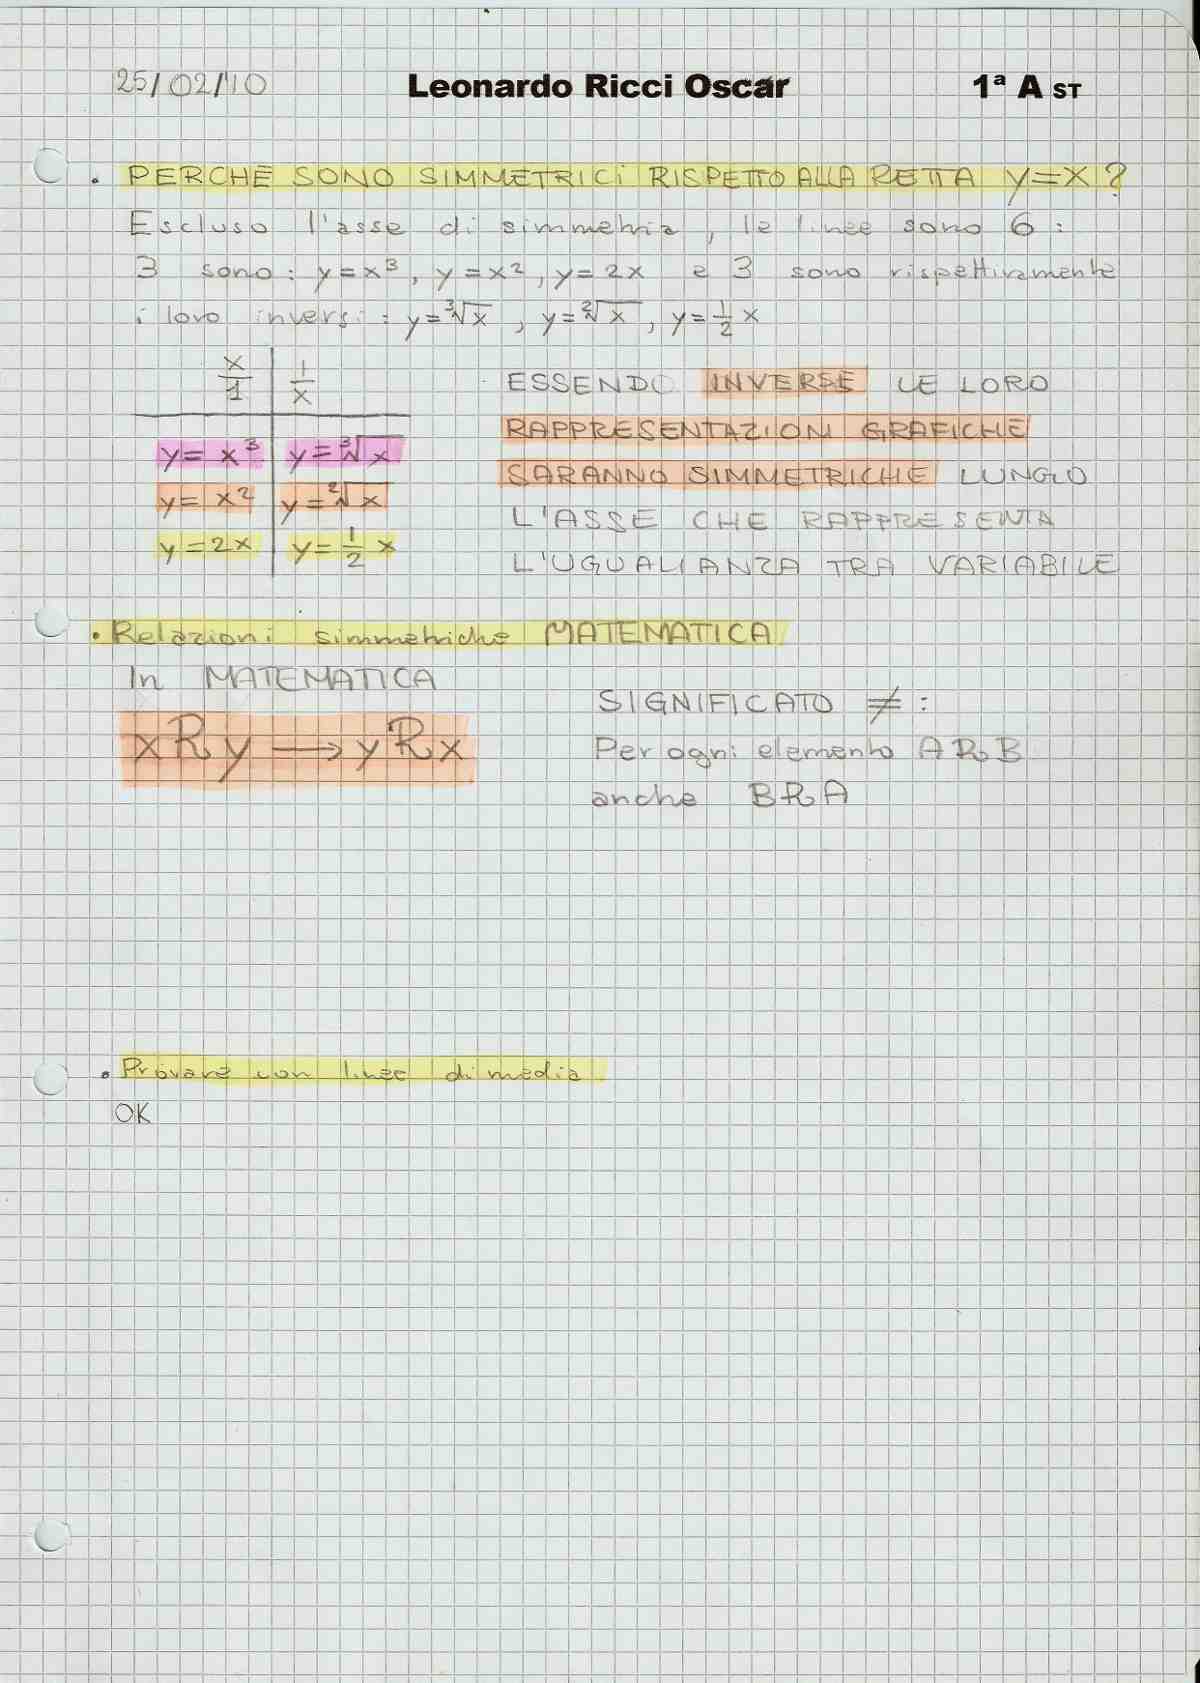 25/02/'10 Leonardo Ricci Oscar 1ª A ST
• PERCHÈ SONO SIMMETRICI RISPETTO ALLA RETTA y=x?
Escluso l'asse di simmetria, le linee sono 6:
3 sono: y=x³, y=x², y=2x e 3 sono rispettivamente
i loro inversi: y=³√x, y=²√x, y=1/2 x
x/1 | 1/x
y=x³ | y=³√x
y=x² | y=²√x
y=2x | y=1/2 x
ESSENDO INVERSE LE LORO
RAPPRESENTAZIONI GRAFICHE
SARANNO SIMMETRICHE LUNGO
L'ASSE CHE RAPPRESENTA
L'UGUALIANZA TRA VARIABILE
• Relazioni simmetriche MATEMATICA
In MATEMATICA
xRy → yRx
SIGNIFICATO ≠:
Per ogni elemento ARB
anche BRA
• Provare con linee di media
OK